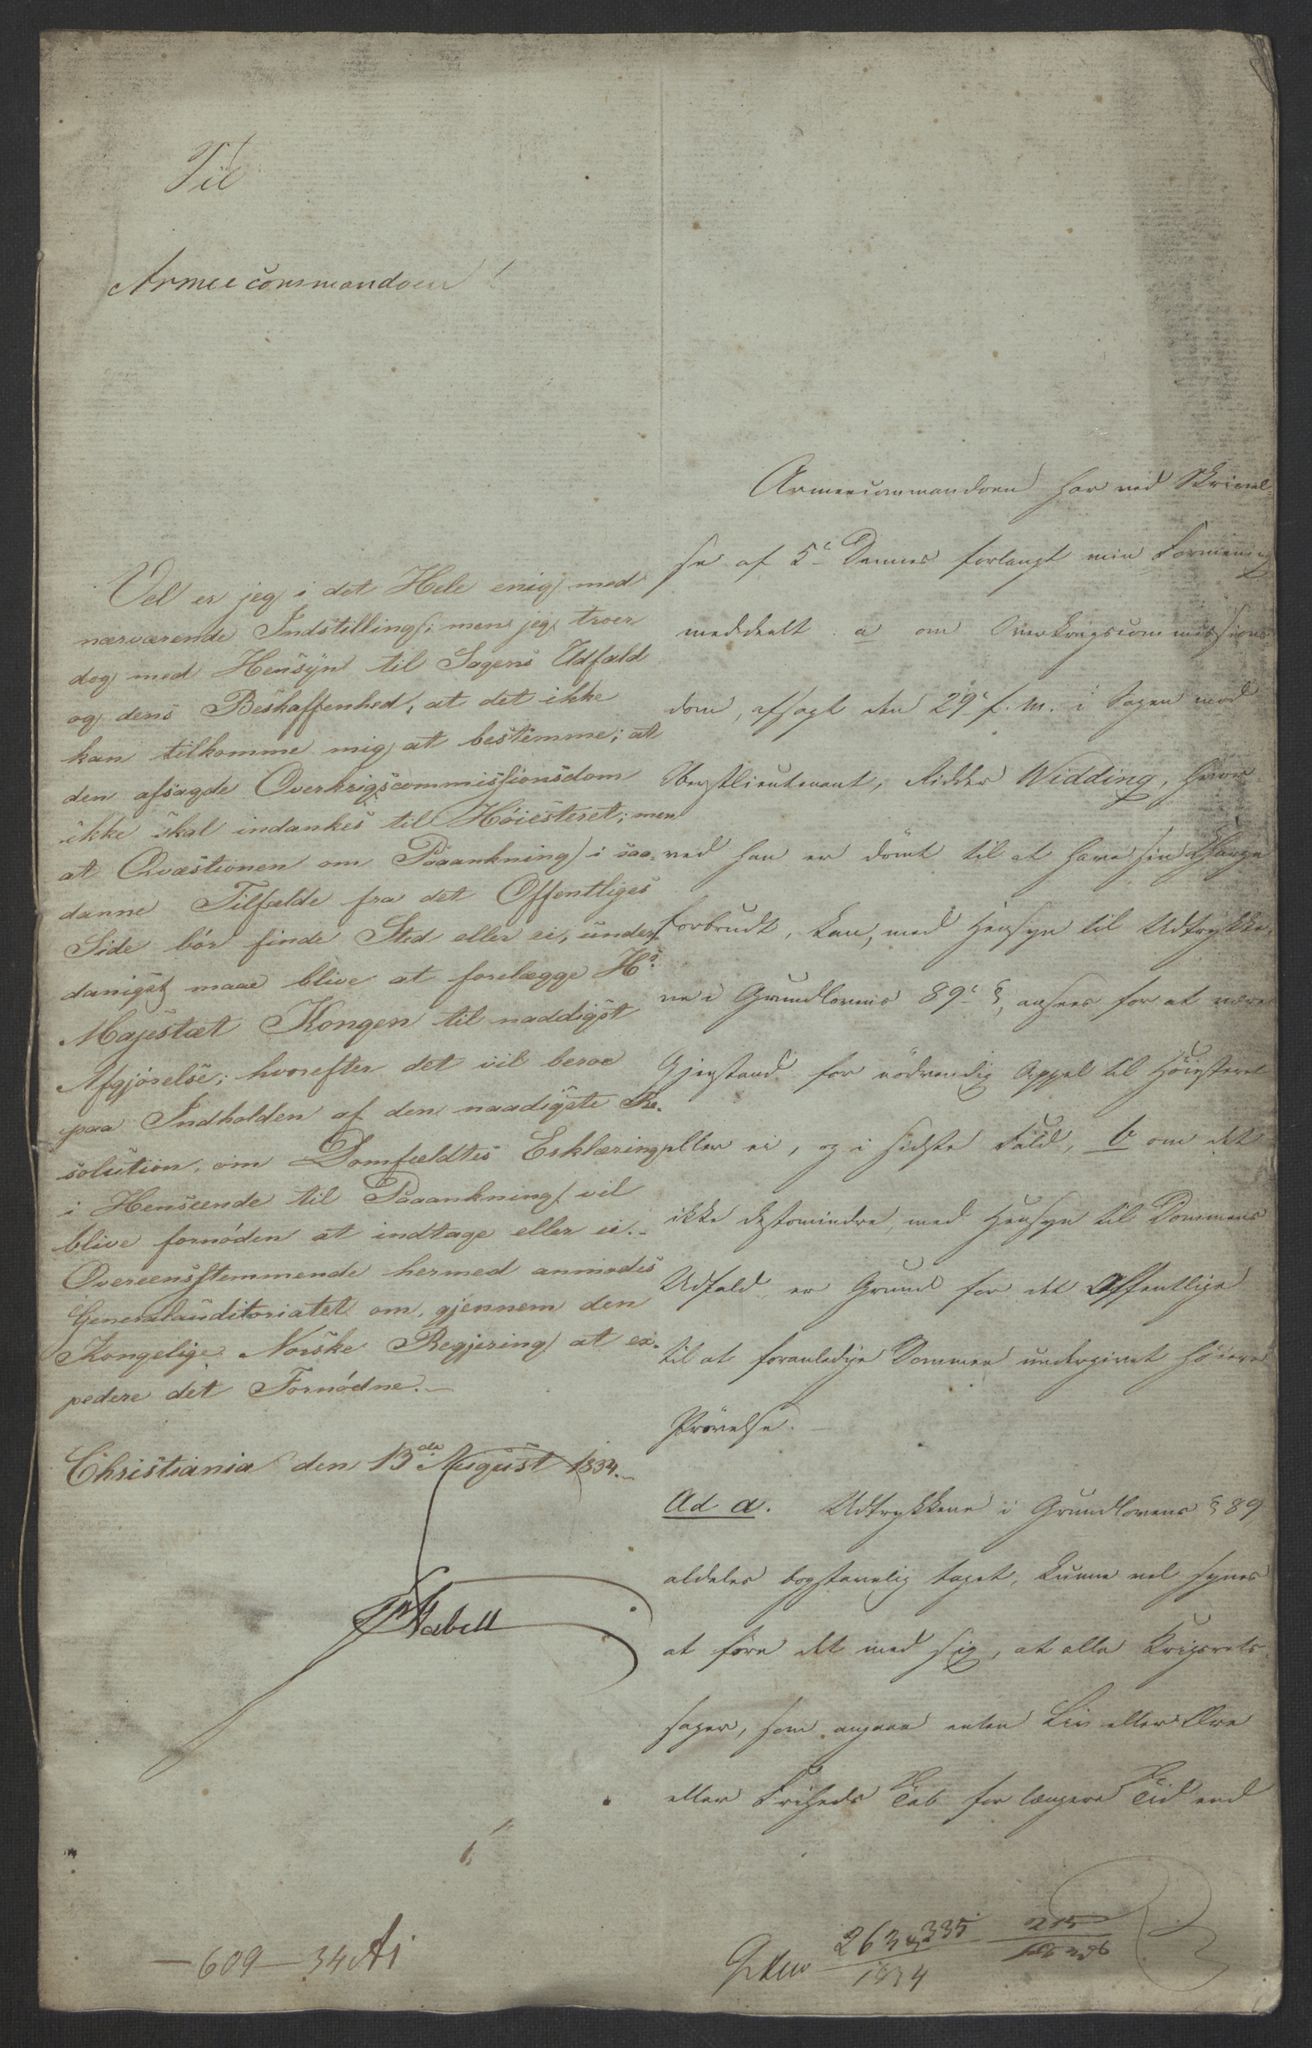 Til
Armeecommandoen!
Vel er jeg i det Hele enig med
nærværende Indstilling; men jeg troer
dog med Hensyn til Sagens Udfald
og dens Beskaffenhed, at det ikke
kan tilkomme mig at bestemme; at
den afsagde Overkrigscommissionsdom
ikke skal indankes til Høiesteret; men
at Qvæstionen om Paaankning i saa-
danne Tilfælde fra det Offentliges
Side bör finde Sted eller ei, under-
danigst maae blive at forelægge Hs.
Majestæt Kongen til naddigst
Afgjörelse; hvorefter det vil beroe
paa Indholden af den naadigste Re-
solution, om Domfældtes Erklæring
i Henseende til Paaankning vil
blive fornöden at indtage eller ei.-
Overeensstemmende hermed anmodes
Generalauditoriatet om, gjennem den
Kongelige Norske Regjering at ex-
pedere det Fornödne.-
Christiania den 13de August 1834.
Armeecommandoen har ved Skrivel-
se af 5te Dennes forlangt min Formening
meddeelt a om Overkrigscommissions-
dom, afsagt den 29de f. M. i Sagen mod
Oberstlieutenant, Ridder Widding, hvor-
ved han er dömt til at have sin Charge
forbrudt, kan, med Hensyn til Udtrykke-
ne i Grundlovens 89de §, ansees for at være
Gjenstand for nödvendig Appel til Höiesteret
eller ei, og i sidste Fald, b om det
ikke destomindre, med Hensyn til Dommens
Udfald er Grund for det Offentlige
til at foranledige Dommen undergivet höiere
Prövelse.-
Ad a. Udtrykkene i Grundlovens § 89
aldeles bogstavelig taget, kunne vel synes
at före det med sig, at alle Krigsrets-
sager, som angaae enten Liv eller Ære
eller Friheds Tab for længere Tid end
-609-34 Ai
263 335
1834
215